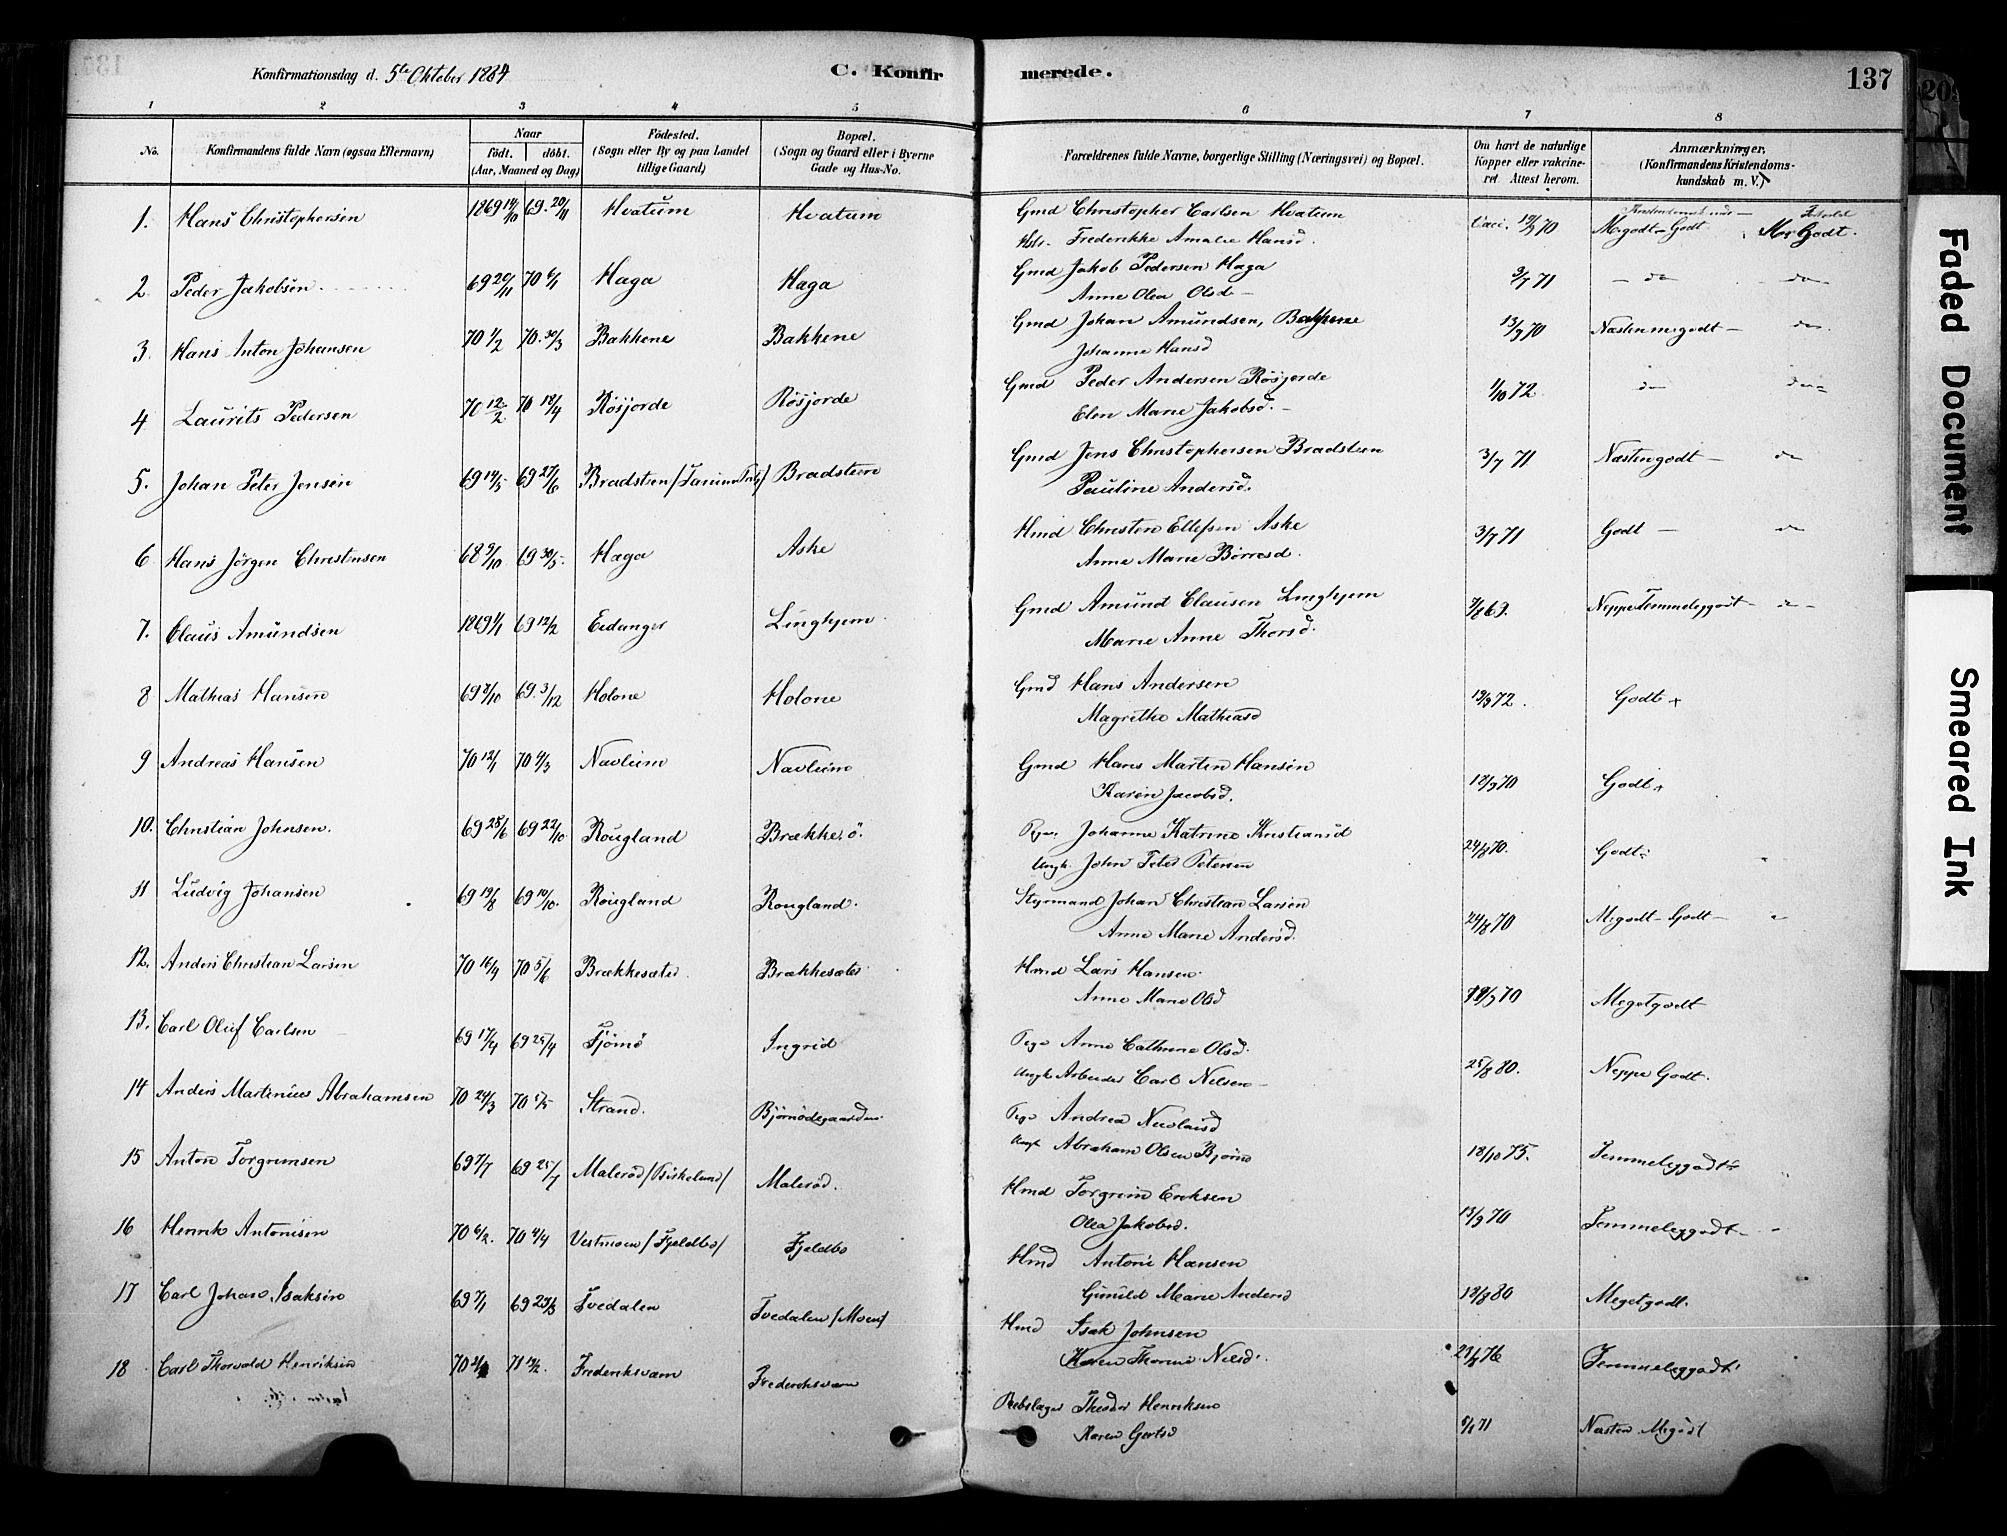 Konfirmationsdag d. 5te Oktober 1884 C. Konfirmerede. 137
1 2 3 4 5 6 7 8
No. Konfirmandens fulde Navn (ogsaa Efternavn) Naar födt. döbt. (Aar, Maaned og Dag) Födested. (Sogn eller By og paa Landet tillige Gaard) Bopæl. (Sogn og Gaard eller i Byerne Gade og Hus-No. Forældrenes fulde Navne, borgerlige Stilling (Næringsvei) og Bopæl. Om havt de naturlige Kopper eller vakcineret. Attest herom. Anmærkninger. (Konfirmandens Kristendomskundskab m. V.)
1. Hans Christophersen 1869 14/10 69. 20/11 Hvatum Hvatum Gmd Christopher Carlsen Hvatum Vacc. 19/9 70 M.godt-Godt Forhold Meg Godt.
Hstr. Frederikke Amalie Hansd.
2 Peder Jakobsen 69 20/11 70 6/1 Haga Haga Gmd Jakob Pedersen Haga 3/7 71 - do - do -
Anne Olea Olsd -
3. Hans Anton Johansen 70 1/2 70. 30/3 Bakkene Bakkene Gmd Johan Amundsen, Bakkene 13/9 70 Næsten megodt - do.
Johanne Hansd
4 Laurits Pedersen 70 12/2 70 18/4 Rösjorde Rösjorde Gmd Peder Andersen Rösjorde 1/10 72 do do
Elen Marie Jakobsd. -
5. Johan Peter Jensen 69 14/5 69 27/6 Bradsteen / Tanum / Bradsteen Gmd Jens Christophersen Bradsteen 3/7 71 Næsten godt - do
Pauline Andersd.
6 Hans Jörgen Christensen 68 9/10 69 30/5. Haga Aske Hmd Christen Ellefsen Aske 3/7 71 Godt - do
Anne Marie Börresd.
7. Claus Amundsen 1869 1/1 69 12/2 Eidanger Linghjem Gmd Amund Clausen Linghjem 9/8 69. Neppe Temmeleggodt - do -
Marie Anne Thorsd.
8 Mathias Hansen 69 8/10 69. 3/12 Holone Holone Gmd Hans Andersen 19/9 72. Godt
Magrethe Mathiasd
9 Andreas Hansen 70 12/1 70 4/3 Navleim Navleim Gmd Hans Martin Hansen 12/9 70 Godt
Karen Jacobsd.
10. Christian Johnsen. 69 25/6 69 22/10 Rougland Brække. ö. Pige Johanne Katrine Kristiansd 24/8 70. Godt
Ungk John Peter Petersen
11 Ludvig Johansen 69 19/8 69 10/10. Rougland Rougland. Styrmand Johan Christian Larsen 24/8 70 M.godt - Godt -
Anne Marie Andersd.
12. Anders Christian Larsen 70 16/4 70 5/6 Brækkesæter. Brækkesæter Hmd Lars Hansen. 19/9 70 Megetgodt
Anne Marie Olsd
13. Carl Oluf Carlsen 69 17/4 69 25/4 Tjömö Ingrid Pige Anne Cathrine Olsd. 25/8 80. Neppe Godt.
Ungk Arbeider Carl Nilsen -
14 Anders Martinius Abrahamsen 70 24/3 70 1/5 Strand. Björnödegaarden Pige Andrea Nicolaisd
Ungk Abraham Olsen Björnö 18/10 75. Temmeleggodt
15 Anton Torgrimsen 69 7/7 69 25/7 Maleröd / Birkelund / Maleröd. Hmd Torgrim Eriksen 13/9 70 Temmeleggodt -
Olea Jakobsd.
16 Henrik Antonisen 70 6/2. 70 4/4 Vestmoen / Fjeldbo / Fjeldbo Hmd Antoni Hansen
Gunild Marie Andersd 19/8 80 Megetgodt.
17 Carl Johan Isaksen 69 7/1 69 29/3 Tvedalen Tvedalen / Moen / Hmd Isak Johnsen
Karen Thorine Nilsd. 21/8 76 Temmeleggodt
18 Carl Thorvald Henriksen 70 71 Frederiksværn Frederiksværn Rebslager Theodor Henriksen
Karen Gertsd 6/1 71 Næsten M.godt
Faded Document
Smeared Ink